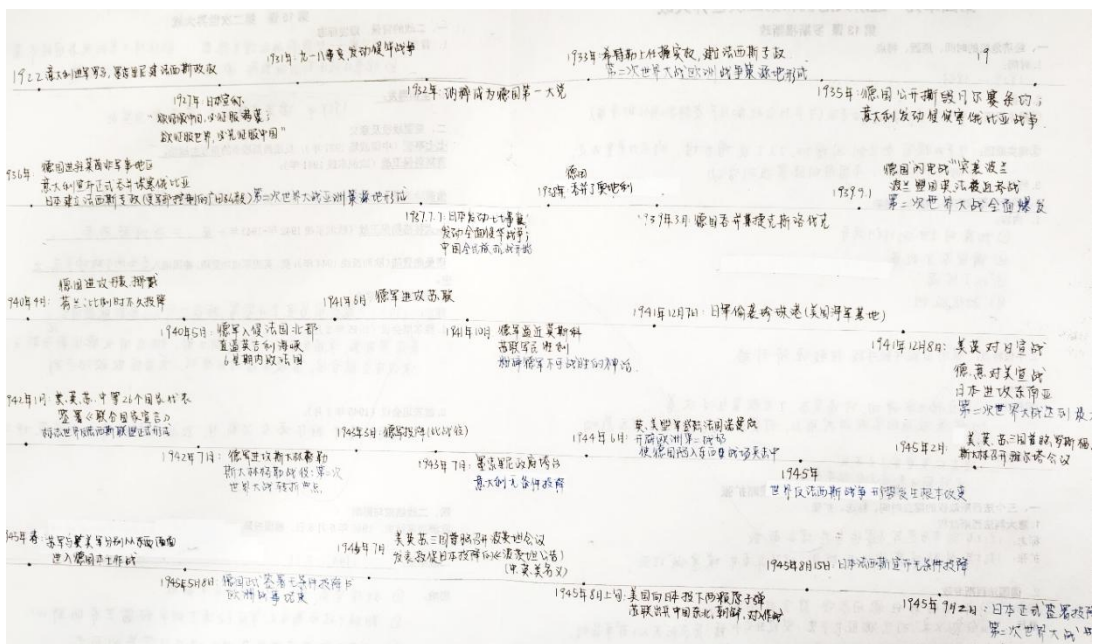 1922 意大利进军罗马,墨索里尼建法西斯政权
1927年:日本宣称:
“欲征服中国,必征服满蒙;
欲征服世界,必先征服中国”
1931年:九一八事变 发动侵华战争
1932年:纳粹成为德国第一大党
1933年:希特勒上台掌实权,建法西斯专政
第二次世界大战欧洲战争策源地形成
1935年:德国公开撕毁凡尔赛条约;
意大利发动侵埃塞俄比亚战争.
936年:德国进驻莱茵非军事地区
意大利宣布正式吞并埃塞俄比亚
日本建立法西斯专政(受军部控制的广田弘毅)第二次世界大战亚洲策源地形成
1937.7.7:日本发动七七事变
发动全面侵华战争;
中国全民族抗战开始
德国
1938年 吞并了奥地利
939年3月:德国吞并捷克斯洛伐克
1939.9.1
德国“闪电战”突袭波兰
波兰盟国英法被迫参战
第二次世界大战全面爆发
940年4月:德国进攻丹麦、挪威
荷兰、比利时不久投降
1940年5月:德军入侵法国北部
直逼英吉利海峡
6星期内败法国
1941年6月:德军进攻苏联
1941年10月:德军逼近莫斯科
苏联军民胜利
粉碎德军不可战胜的神话.
1941年12月7日:日军偷袭珍珠港(美国海军基地)
1941年12月8日:美英对日宣战
德、意对美宣战
日本进攻东南亚
第二次世界大战达到最大
942年1月:美、英、苏、中等26个国家代表
签署《联合国家宣言》
标志世界反法西斯联盟正式形成
1942年7月:德军进攻斯大林格勒
斯大林格勒战役:第二次
世界大战转折点
1943年7月:墨索里尼政府垮台
意大利无条件投降
1944年6月:英、美盟军登陆法国诺曼底
开辟欧洲第二战场
使德国陷入东西夹击中
1945年
世界反法西斯战争形势发生根本改变
1945年2月:美、英、苏三国首脑罗斯福、
斯大林召开雅尔塔会议
945年春:苏军与英美军分别从东西两面
进入德国本土作战
1945年5月8日:德国正式签署无条件投降书
欧洲战事结束
1945年7月 美英苏三国首脑召开波茨坦会议
发表敦促日本投降的《波茨坦公告》
(中英美名义)
1945年8月上旬:美国向日本投下两颗原子弹
苏联出兵中国东北、朝鲜,对日作战
1945年8月15日:日本法西斯宣布无条件投降
1945年9月2日:日本正式签署投降
第二次世界大战